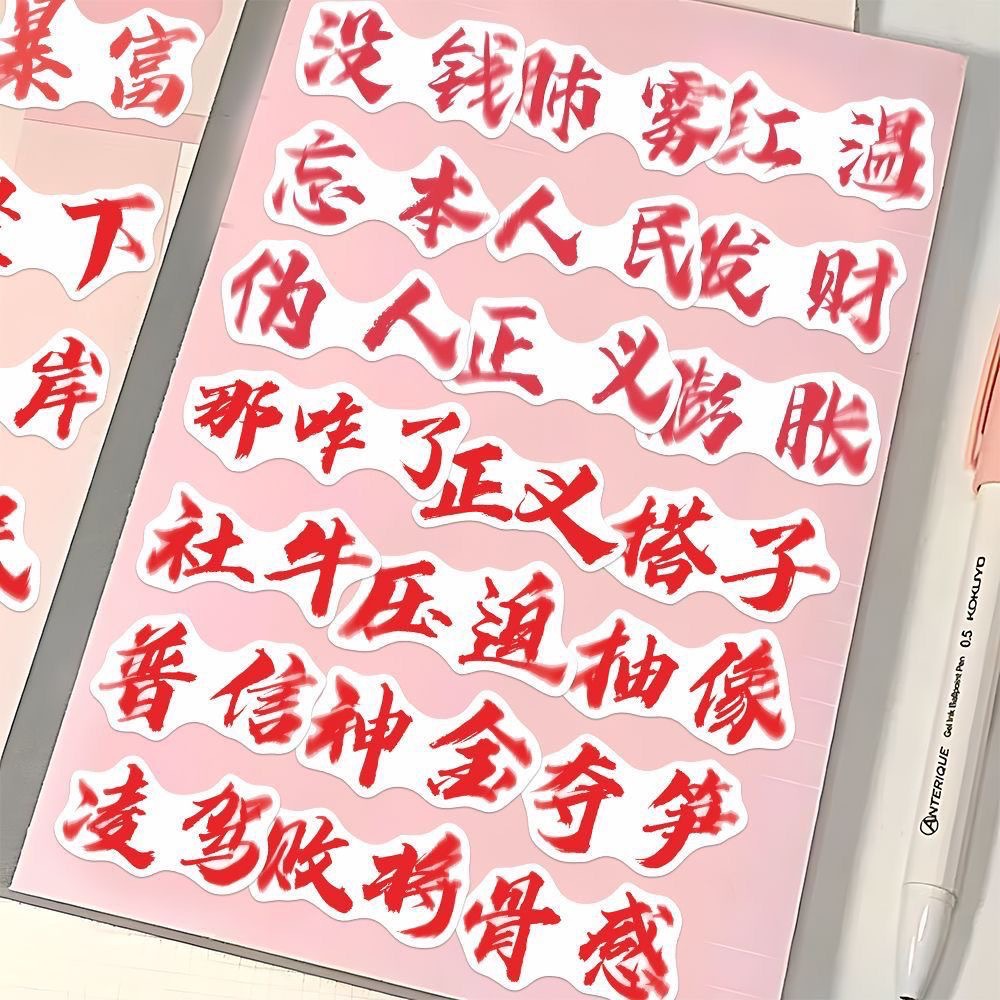 暴富
下
岸
没钱 肺雾 红温
忘本 人民 发财
伪人 正义 膨胀
那咋了 正义 搭子
社牛 压迫 抽像
普信 神金 夺笋
凌驾 败将 骨感
ANTERIQUE Gel Ink Ballpoint Pen 0.5 KOKUYO